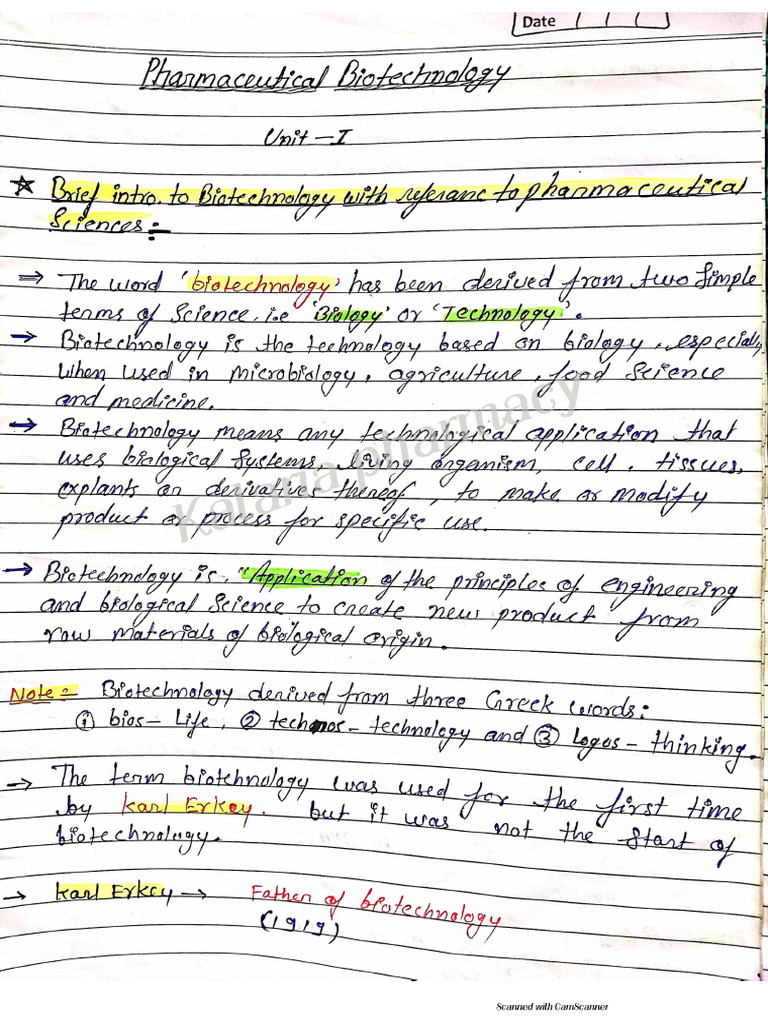 Date
Pharmaceutical Biotechnology
Unit - I
☆ Brief intro. to Biotechnology with referanc to pharmaceutical
Sciences:-
⇒ The word 'biotechnology' has been derived from two Simple
terms of Science, i.e 'Biology' or 'Technology'.
→ Biotechnology is the technology based on biology, especially
when used in microbiology, agriculture, food Science
and medicine.
→ Biotechnology means any technological application that
uses biological Systems, living organism, cell, tissues,
explants or derivatives thereof, to make or modify
product or process for specific use.
Kataria pharmacy
→ Biotechnology is, "Application of the principles of engineering
and biological Science to create new product from
raw materials of biological origin.
Note:- Biotechnology derived from three Greek words:
① bios - Life, ② technos - technology and ③ Logos - thinking.
→ The term biotehnology was used for the first time
by Karl Erkey. but it was not the start of
biotechnology.
→ Karl Erkey → Father of biotechnology
(1919)
Scanned with CamScanner